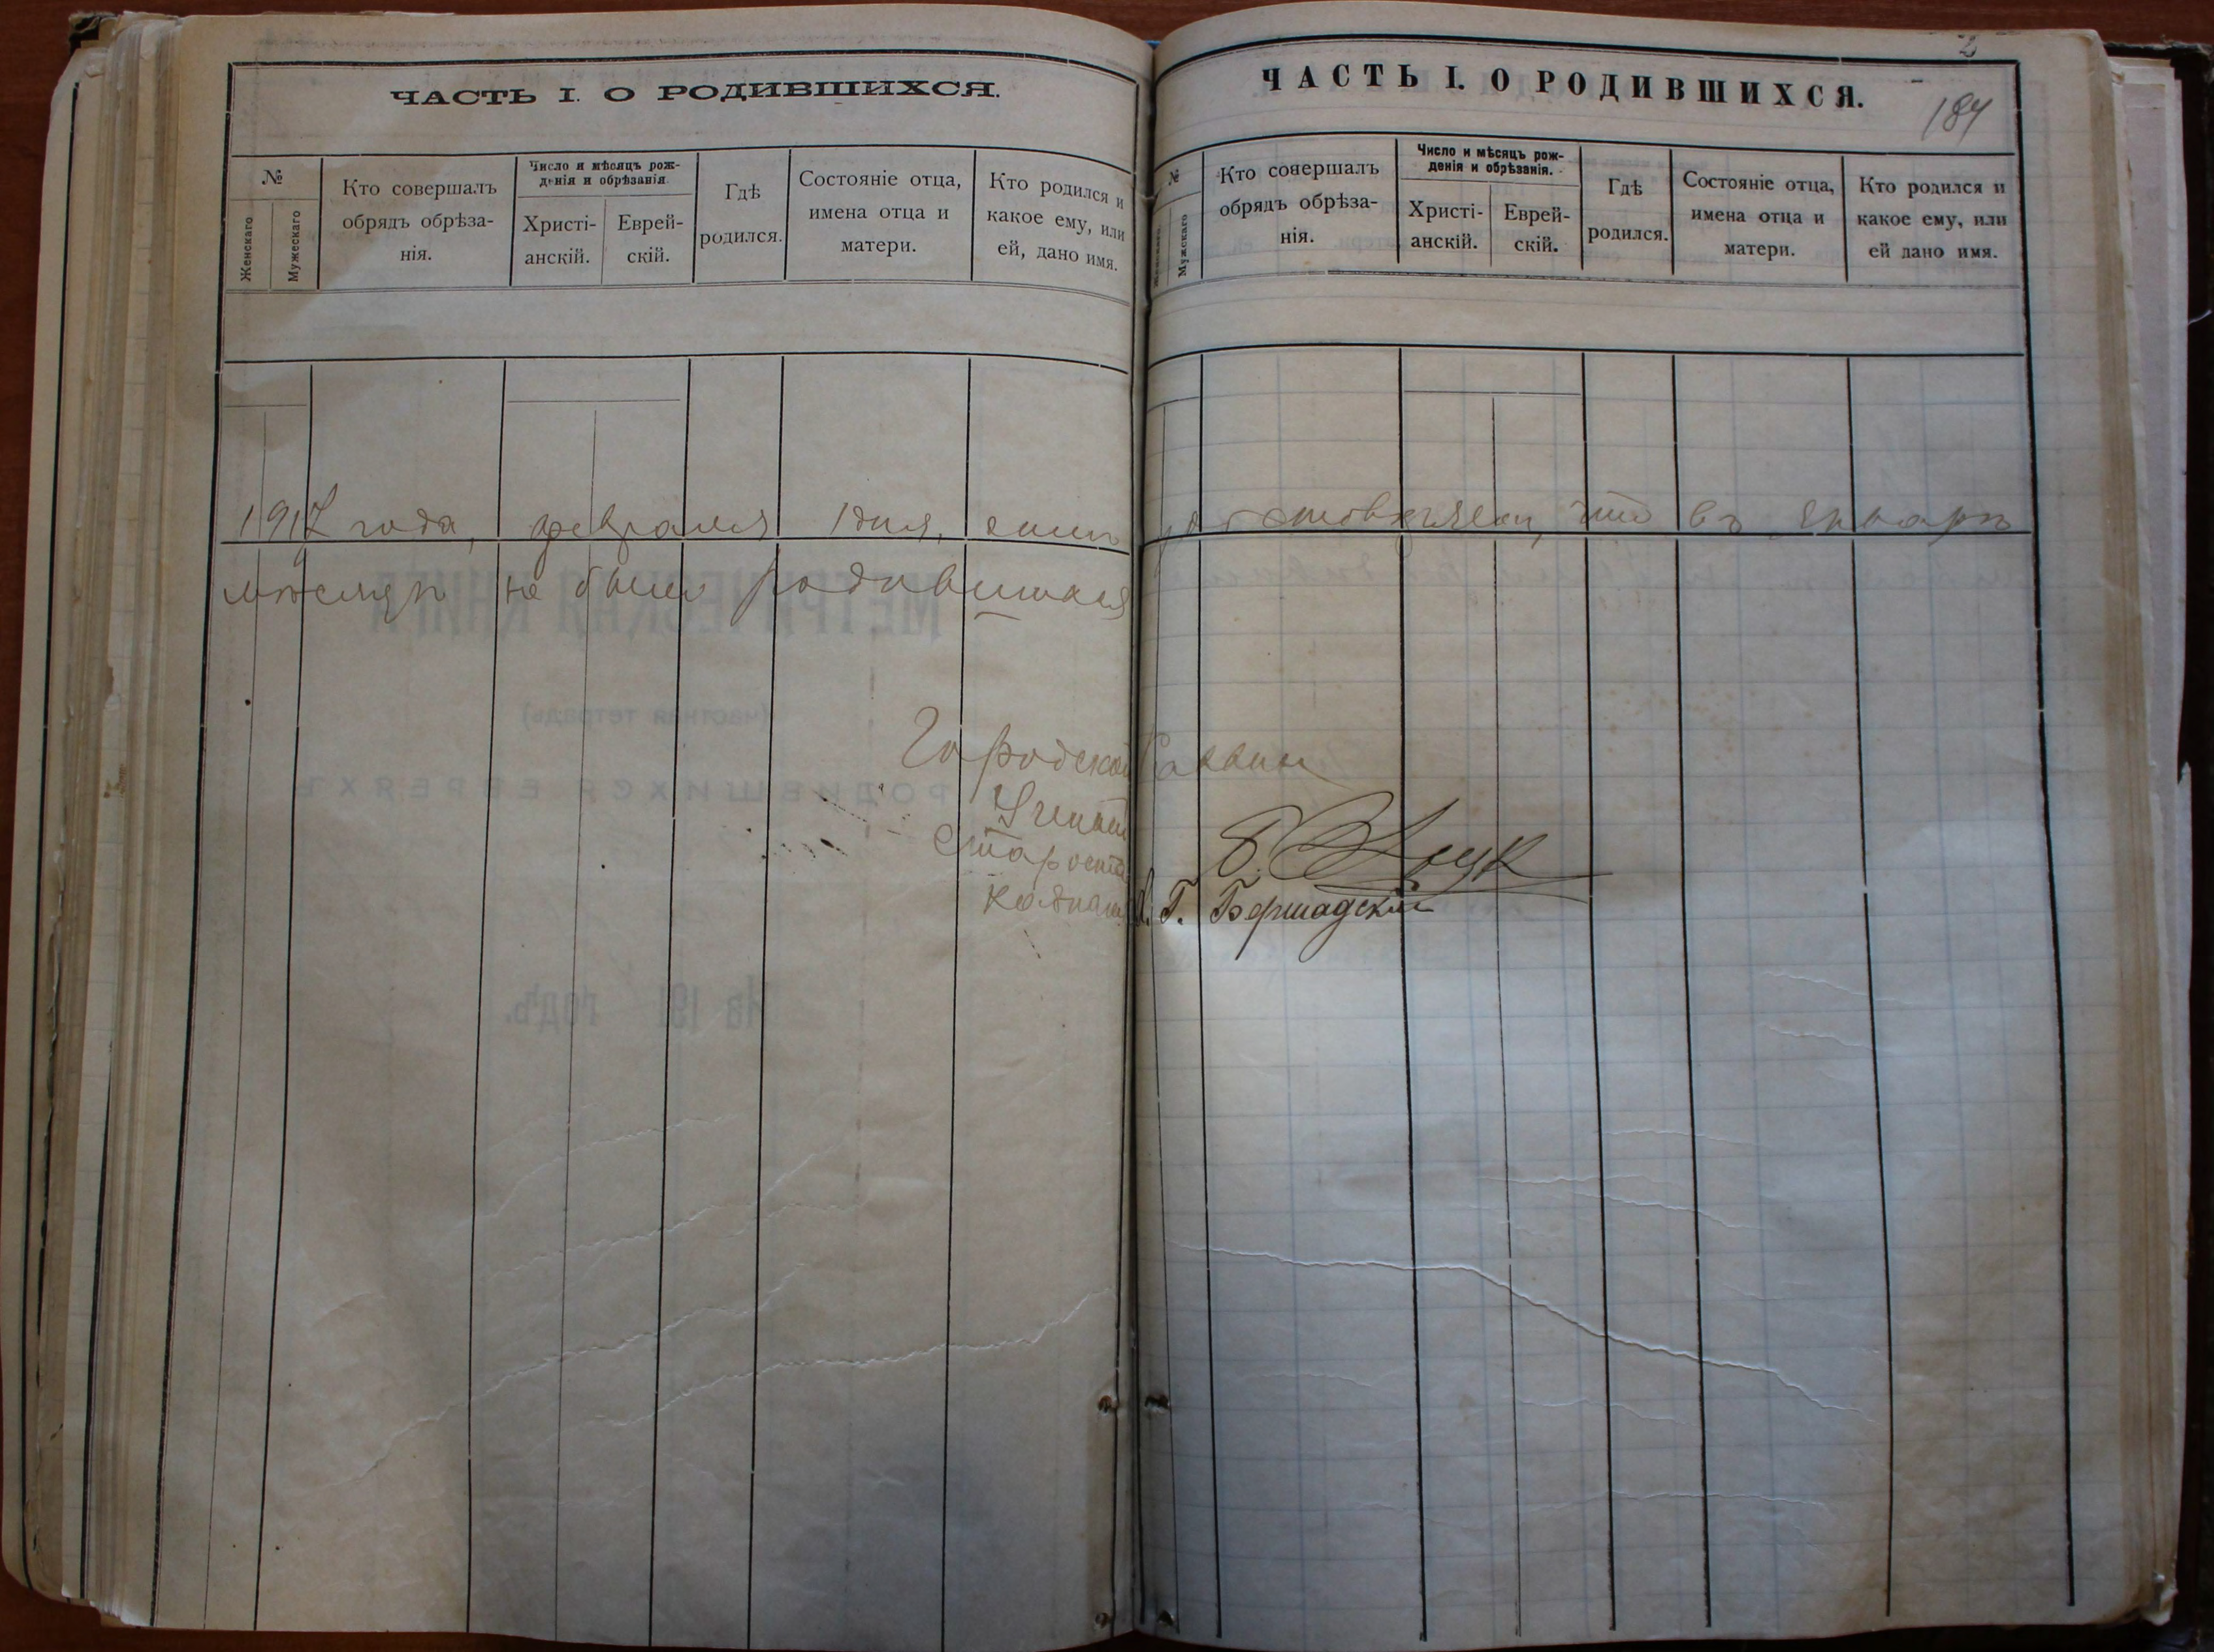 ЧАСТЬ I. О РОДИВШИХСЯ.
№
Женскаго
Мужескаго
Кто совершалъ
обрядъ обрѣза-
нія.
Число и мѣсяцъ рож-
денія и обрѣзанія.
Христі-
анскій.
Еврей-
скій.
Гдѣ
родился.
Состояніе отца,
имена отца и
матери.
Кто родился и
какое ему, или
ей, дано имя.
2
ЧАСТЬ I. О РОДИВШИХСЯ.
184
№
Женскаго
Мужскаго
Кто совершалъ
обрядъ обрѣза-
нія.
Число и мѣсяцъ рож-
денія и обрѣзанія.
Христі-
анскій.
Еврей-
скій.
Гдѣ
родился.
Состояніе отца,
имена отца и
матери.
Кто родился и
какое ему, или
ей дано имя.
1917 года, февраля 1 дня, симъ удостовѣряемъ, что въ январѣ
мѣсяцѣ не было родившихся
Городской Раввинъ
Ученый
Староста
Казначей Г. Бершадскій
МЕТРИЧЕСКАЯ КНИГА
(частная тетрадь)
РОДИВШИХСЯ ЕВРЕЯХЪ
На 191 годъ.